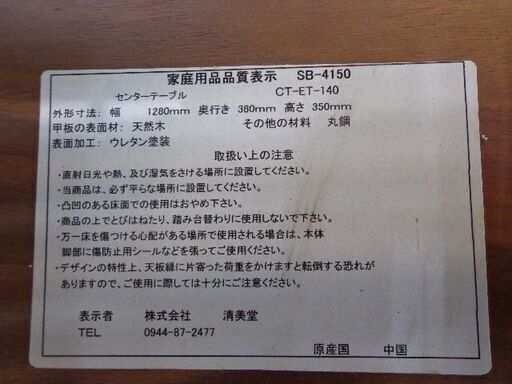 家庭用品品質表示　SB-4150
センターテーブル　CT-ET-140
外形寸法: 幅　1280mm 奥行き 380mm 高さ 350mm
甲板の表面材: 天然木　その他の材料　丸鋼
表面加工: ウレタン塗装
取扱い上の注意
・直射日光や熱、及び湿気をさける場所に設置してください。
・当商品は、必ず平らな場所に設置してください。
・凸凹のある床面での使用はおやめ下さい。
・商品の上でとびはねたり、踏み台替わりに使用しないで下さい。
・万一床を傷つける心配がある場所で使用される場合は、本体
脚部に傷防止用シールなどを張ってご使用ください。
・デザインの特性上、天板縁に片寄った荷重をかけますと転倒する恐れが
ありますので、ご使用に際しては十分にご注意ください。
表示者　株式会社　清美堂
TEL　0944-87-2477
原産国　中国